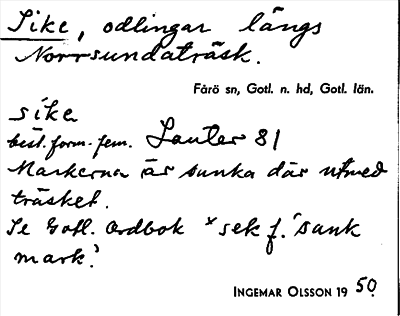 Sike, odlingar längs
Norrsundaträsk.
Fårö sn, Gotl. n. hd, Gotl. län.
síke
best. form. fem. Lauter 81
Markerna är sunka där utmed
träsket.
Se Gotl. Ordbok *sek f. 'sank
mark'
INGEMAR OLSSON 19 50.